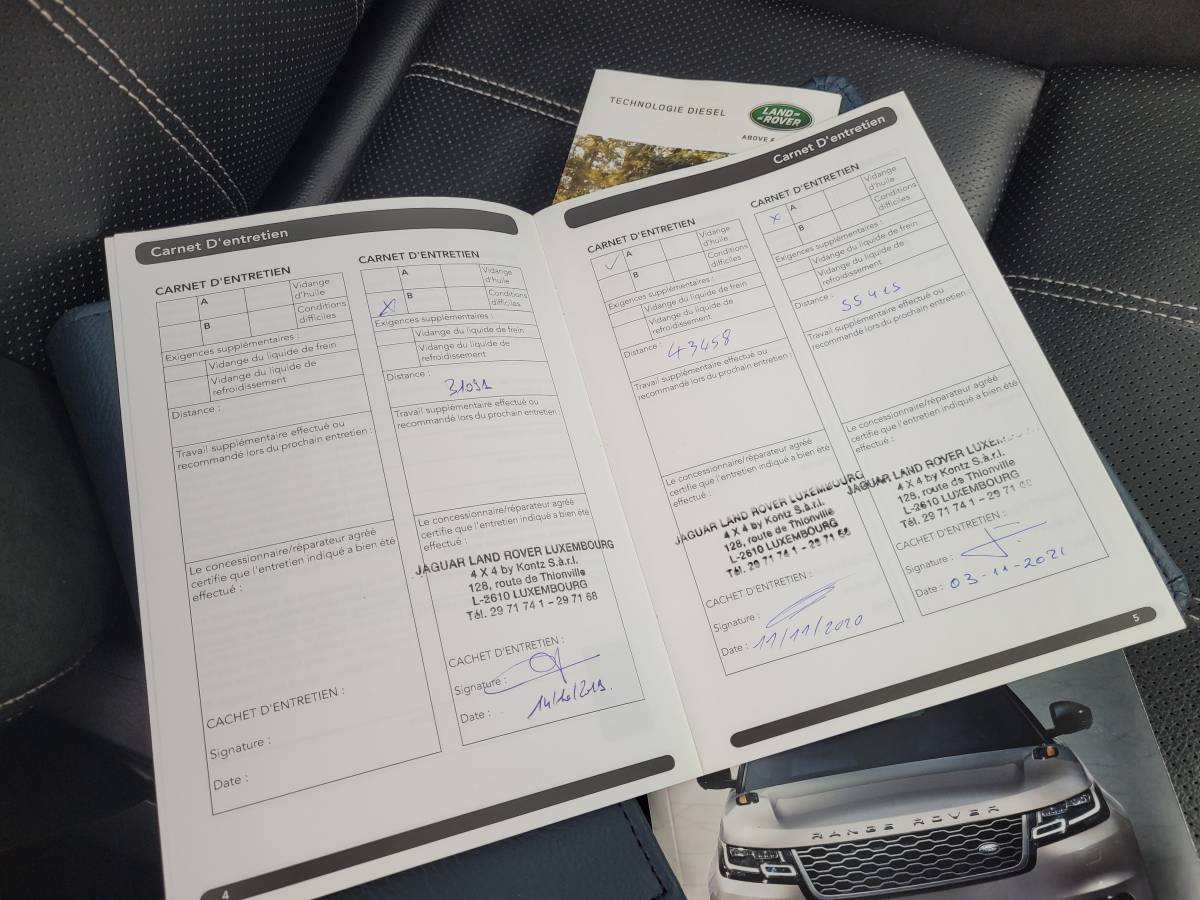 TECHNOLOGIE DIESEL
LAND
ROVER
ABOVE &
Carnet D'entretien
CARNET D'ENTRETIEN
A
Vidange
d'huile
B
Conditions
difficiles
Exigences supplémentaires :
Vidange du liquide de frein
Vidange du liquide de
refroidissement
Distance :
Travail supplémentaire effectué ou
recommandé lors du prochain entretien :
Le concessionnaire/réparateur agréé
certifie que l'entretien indiqué a bien été
effectué :
CACHET D'ENTRETIEN :
Signature :
Date :
4
CARNET D'ENTRETIEN
A
Vidange
d'huile
X
B
Conditions
difficiles
Exigences supplémentaires :
Vidange du liquide de frein
Vidange du liquide de
refroidissement
Distance :
31091
Travail supplémentaire effectué ou
recommandé lors du prochain entretien :
Le concessionnaire/réparateur agréé
certifie que l'entretien indiqué a bien été
effectué :
JAGUAR LAND ROVER LUXEMBOURG
4 X 4 by Kontz S.à.r.l.
128, route de Thionville
L-2610 LUXEMBOURG
Tél. 29 71 74 1 – 29 71 68
CACHET D'ENTRETIEN :
Signature :
Date : 14/10/2019.
Carnet D'entretien
CARNET D'ENTRETIEN
✓
A
Vidange
d'huile
B
Conditions
difficiles
Exigences supplémentaires :
Vidange du liquide de frein
Vidange du liquide de
refroidissement
Distance : 43458
Travail supplémentaire effectué ou
recommandé lors du prochain entretien :
Le concessionnaire/réparateur agréé
certifie que l'entretien indiqué a bien été
effectué :
JAGUAR LAND ROVER LUXEMBOURG
4 X 4 by Kontz S.à.r.l.
128, route de Thionville
L-2610 LUXEMBOURG
Tél. 29 71 74 1 – 29 71 68
CACHET D'ENTRETIEN :
Signature :
Date : 11/11/2020
CARNET D'ENTRETIEN
X
A
Vidange
d'huile
B
Conditions
difficiles
Exigences supplémentaires :
Vidange du liquide de frein
Vidange du liquide de
refroidissement
Distance : 55425
Travail supplémentaire effectué ou
recommandé lors du prochain entretien :
Le concessionnaire/réparateur agréé
certifie que l'entretien indiqué a bien été
effectué :
JAGUAR LAND ROVER LUXEM
4 X 4 by Kontz S.à.r.l.
128, route de Thionville
L-2610 LUXEMBOURG
Tél. 29 71 74 1 – 29 71 68
CACHET D'ENTRETIEN :
Signature :
Date : 03-11-2021
5
RANGE ROVER